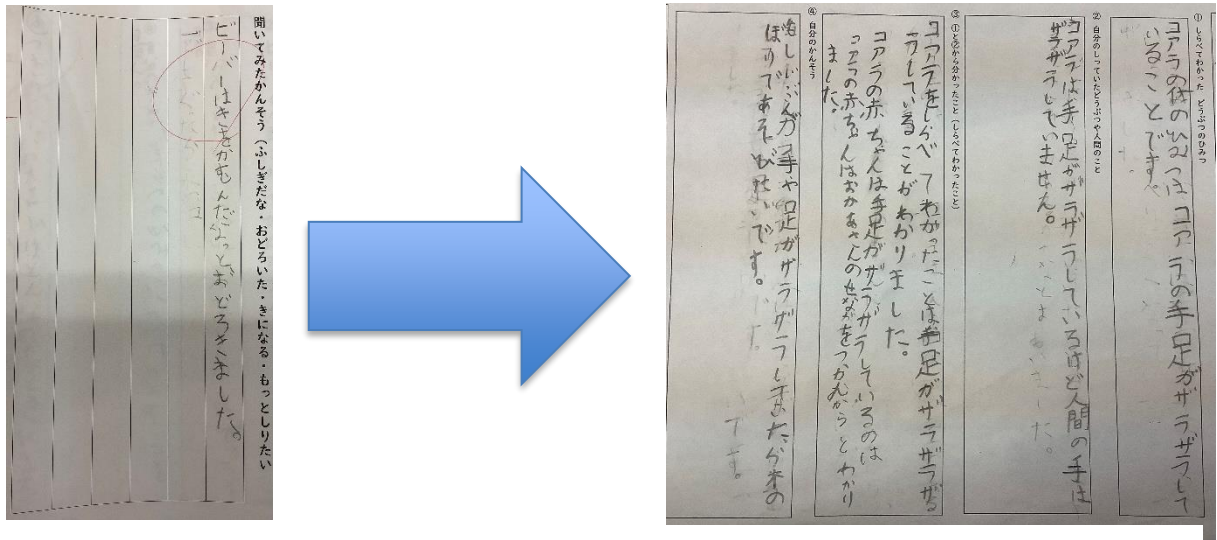 聞いてみたかんそう（ふしぎだな・おどろいた・きになる・もっとしりたい
ビーバーはきをかむんだなっとおどろきました。
① しらべてわかった どうぶつのひみつ
コアラの体のひみつはコアラの手足がザラザラして
いることです。
② 自分のしっていたどうぶつや人間のこと
コアラは手足がザラザラしているけど人間の手は
ザラザラしていません。
③ ①と②から分かったこと（しらべてわかったこと）
コアラをしらべてわかったことは手足がザラザラ
していることがわかりました。
コアラの赤ちゃんは手足がザラザラしているのは
コアラの赤ちゃんはおかあさんのせなかをつかむからとわかり
ました。
④ 自分のかんそう
もしじぶんが手や足がザラザラしてたら木の
ぼりであそびたいです。